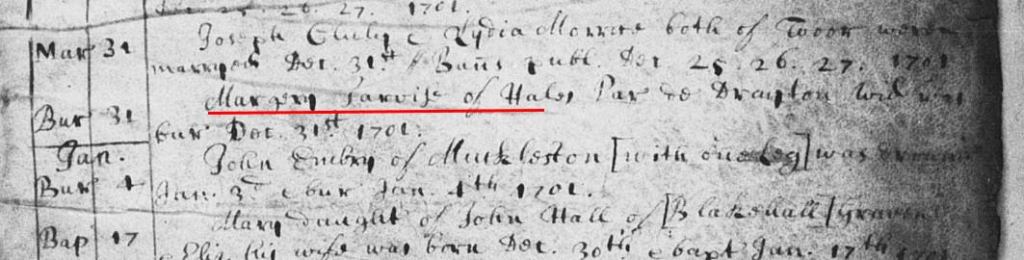 25. 26. 27. 1701.
Mar 31 Joseph & Lydia Morrice both of Woor were
marryed Dec. 31st Banns publ. Dec 25. 26. 27. 1701
Margery Jarvise of Hales Par de Drayton wid was
Bur 31 bur Dec. 31st 1701.
Jan. John Embry of Muckleston [with one Leg] was
Bur 4 Jan. 3d & bur Jan. 4th 1701.
Mary daught of John Hall of [Blakehall]
Bap 17 & Eliz. his wife was born Dec. 30th & bapt Jan. 17th 1701